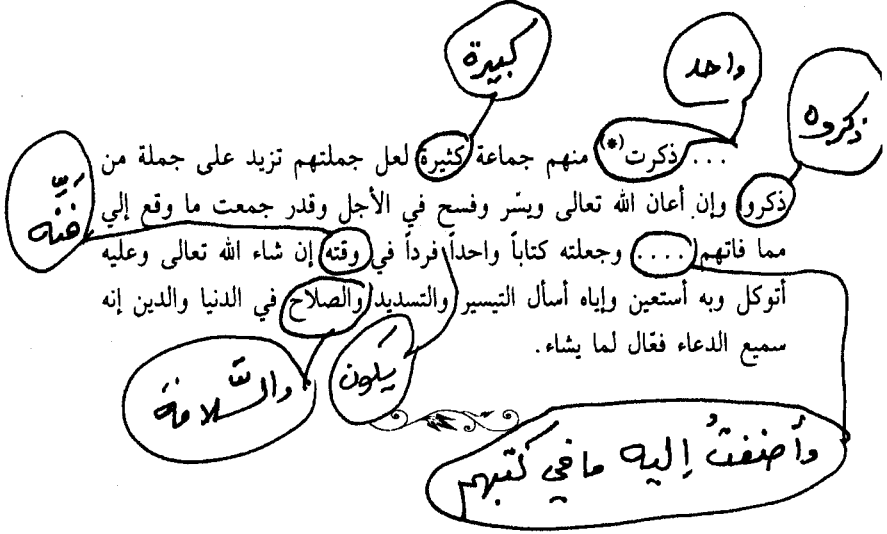 كبيرة
واحد
ذكروه
... ذكرت(*) منهم جماعة كثيرة لعل جملتهم تزيد على جملة من
ذكروا وإن أعان الله تعالى ويسّر وفسح في الأجل وقدر جمعت ما وقع إلي
مما فاتهم .... وجعلته كتاباً واحداً فرداً في وقته إن شاء الله تعالى وعليه
أتوكل وبه أستعين وإياه أسأل التيسير والتسديد والصلاح في الدنيا والدين إنه
سميع الدعاء فعّال لما يشاء.
فنِّه
يكون
والسَّلامة
وأضفتُ إليه ما في كتبهم